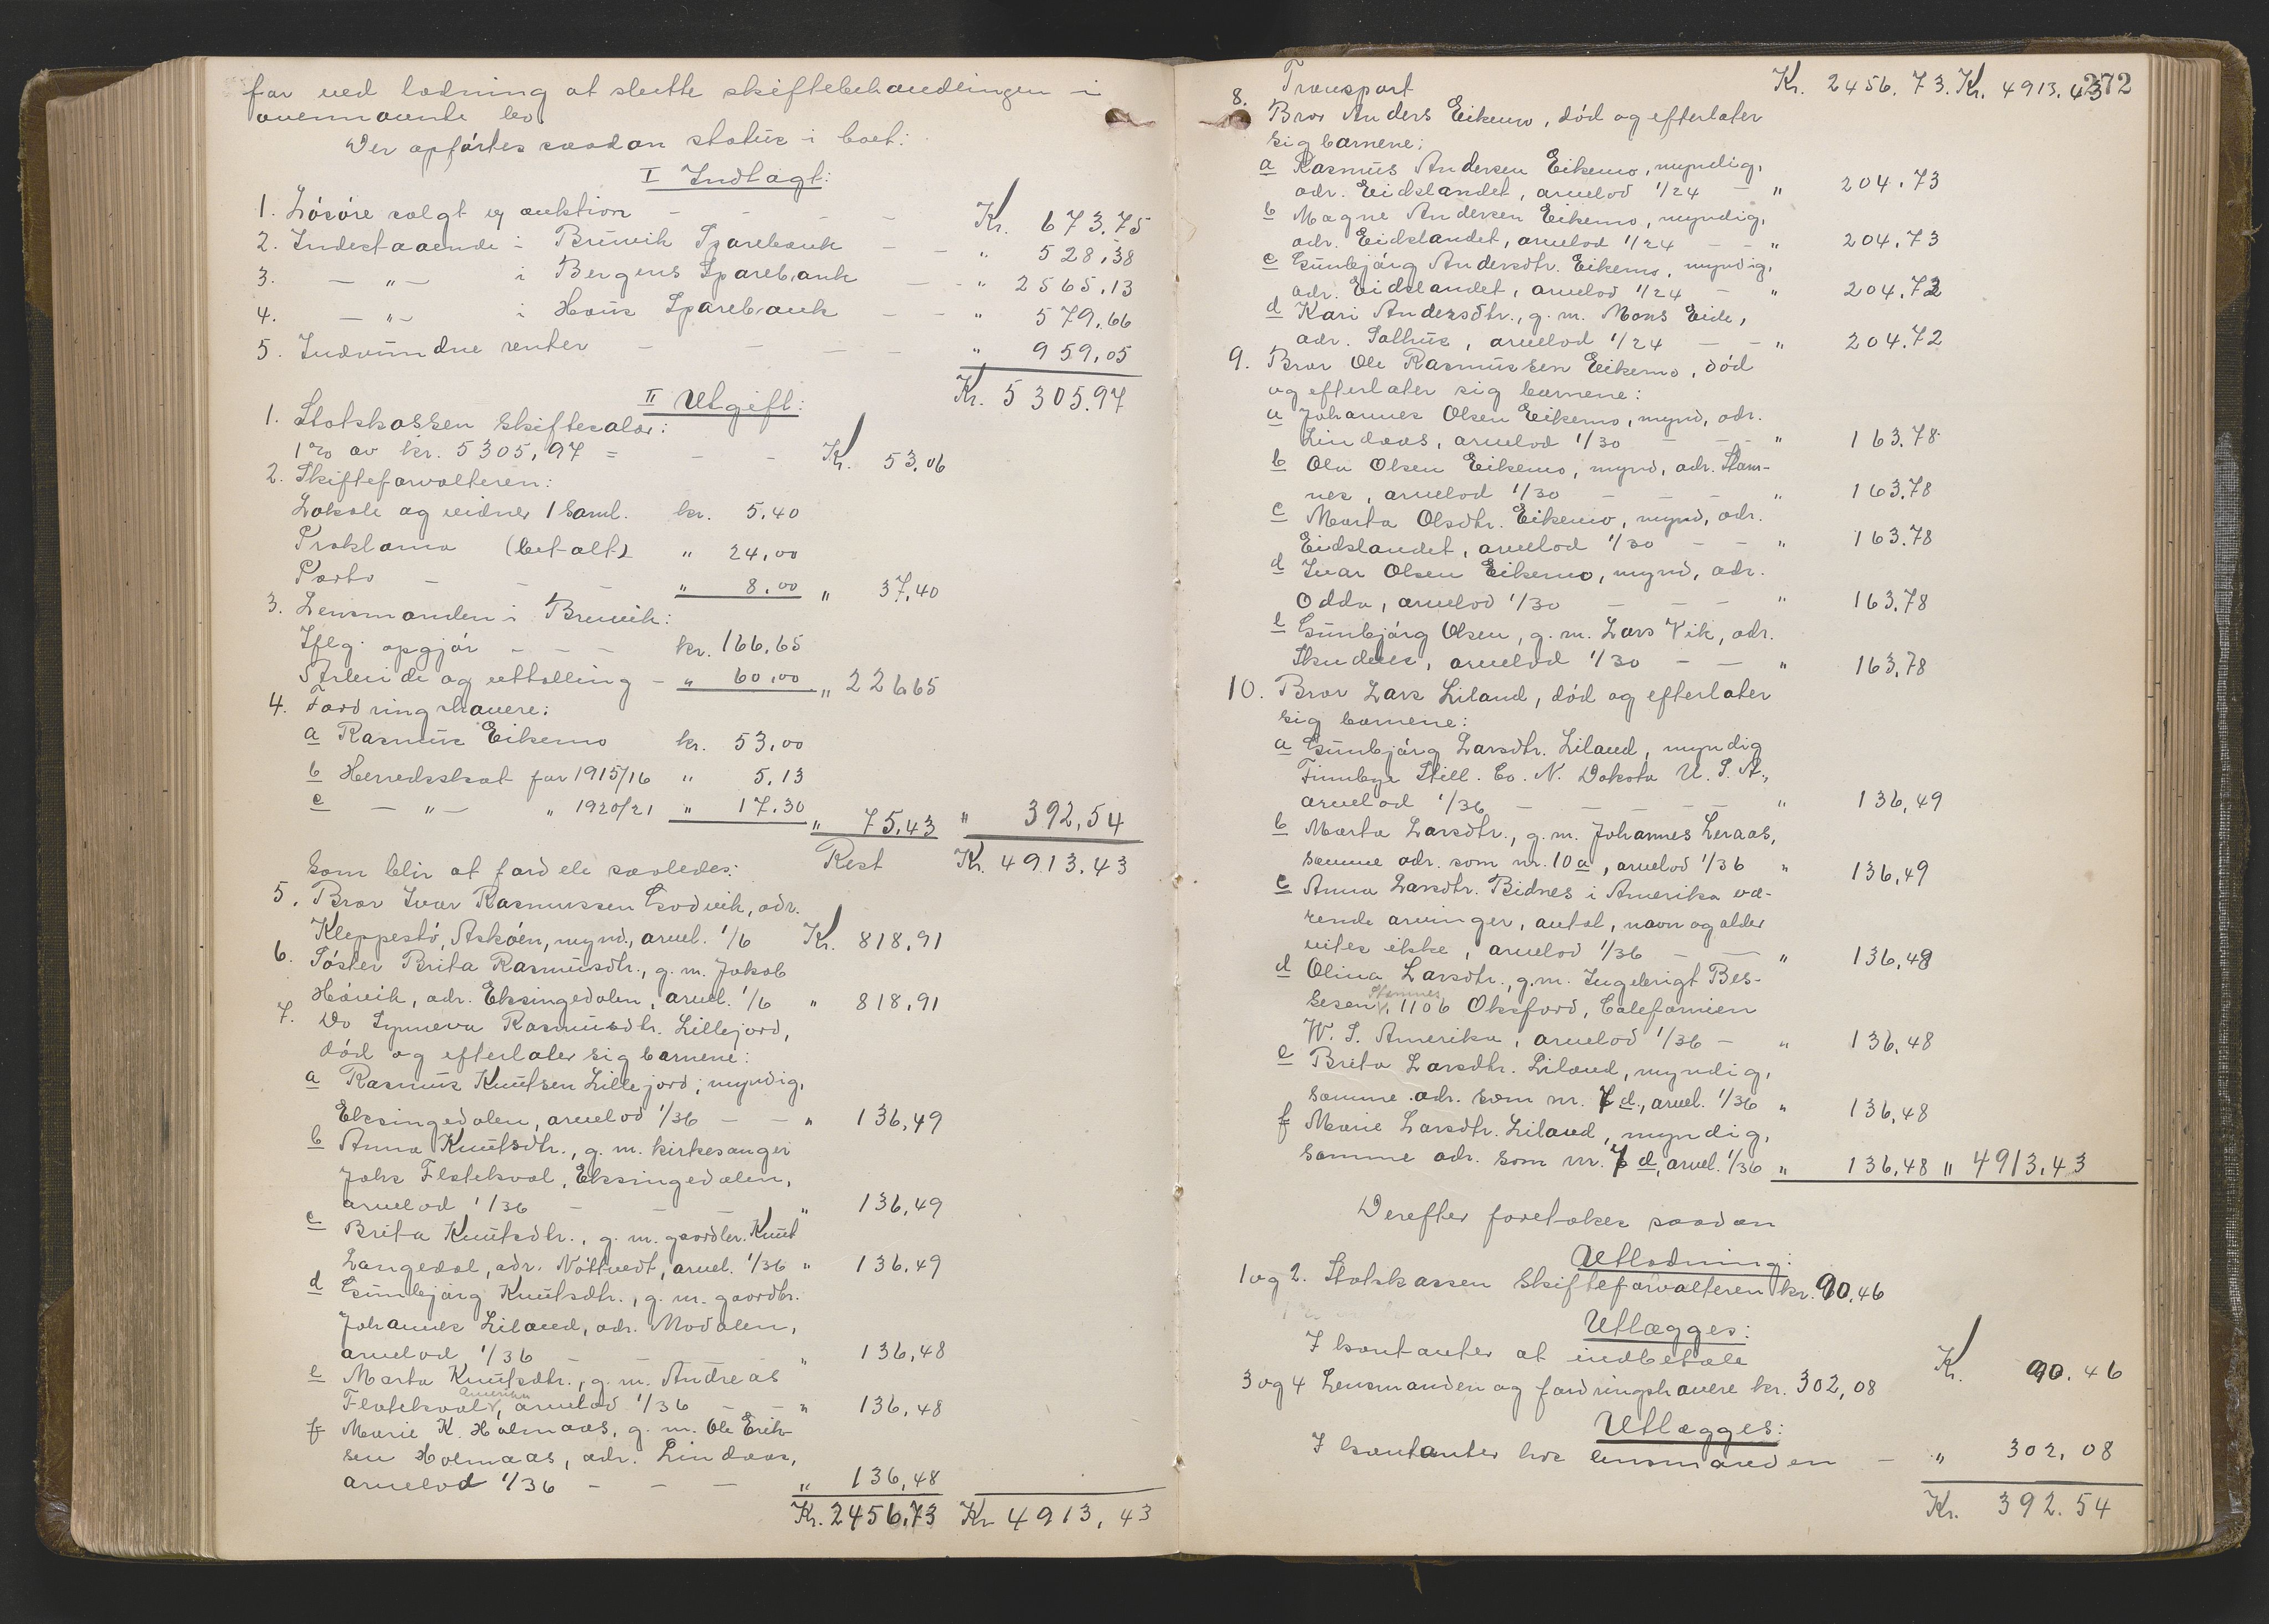 for ved lodning at slutte skiftebehandlingen i
ovennævnte bo
Der opførtes saadan status i boet:
I Indtægt:
1. Løsøre solgt ep auktion - - - - Kr. 673.75
2. Indestaaende i Bruvik Sparebank - - " 528.38
3. - " - i Bergens Sparebank - - " 2565.13
4. - " - i Haus Sparebank - - " 579.66
5. Indvundne renter - - - - " 959.05
Kr. 5305.97
II Utgift:
1. Statskassen skiftesalær:
1% av kr. 5305,97 = - - Kr. 53.06
2. Skifteforvalteren:
Lokale og vidner 1 saml. kr. 5.40
Proklama (betalt) " 24,00
Porto - - - " 8.00 " 37,40
3. Lensmanden i Bruvik:
Iflg. opgjør - - - kr. 166,65
Arbeide og uttælling - " 60,00 " 226,65
4. Fordringshavere:
a Rasmus Eikemo kr. 53,00
b Herredsskat for 1915/16 " 5.13
c - " - " 1920/21 " 17.30 " 75,43 " 392,54
Rest Kr. 4913,43
som blir at fordele saaledes:
5. Bror Ivar Rasmussen Godvik, adr.
Kleppestø, Askøen, mynd., arvel. 1/6 Kr. 818,91
6. Søster Brita Rasmusdtr., g. m. Jakob
Høvik, adr. Eksingedalen, arvel. 1/6 " 818,91
7. Do Synneva Rasmusdtr. Lillejord,
død og efterlater sig barnene:
a Rasmus Knutsen Lillejord, myndig,
Eksingedalen, arvelod 1/36 - - " 136,49
b Anna Knutsdtr., g. m. kirkesanger
Johs Flatekval, Eksingedalen,
arvelod 1/36 - - - " 136,49
c Brita Knutsdtr., g. m. gaardbr. Knut
Langedal, adr. Nøttvedt, arvel. 1/36 " 136,49
d Gunbjørg Knutsdtr., g. m. gaardbr.
Johannes Liland, adr. Modalen,
arvelod 1/36 - - - " 136,48
e Marta Knutsdtr., g. m. Andreas
Amerika
Flatekval, arvelod 1/36 - - " 136,48
f Marie K. Holmaas, g. m. Ole Erik-
sen Holmaas, adr. Lindaas,
arvelod 1/36 - - - " 136,48
Kr. 2456,73 Kr 4913,43
272
Transport Kr. 2456.73. Kr. 4913.43
8. Bror Anders Eikemo, død og efterlater
sig barnene:
a Rasmus Andersen Eikemo, myndig,
adr. Eidslandet, arvelod 1/24 - " 204.73
b Magne Andersen Eikemo, myndig,
adr. Eidslandet, arvelod 1/24 - - " 204,73
c Gunbjørg Andersdtr. Eikemo, myndig,
adr. Eidslandet, arvelod 1/24 - " 204.72
d Kari Andersdtr., g. m. Mons Eide,
adr. Salhus, arvelod 1/24 - - " 204.72
9. Bror Ole Rasmussen Eikemo, død
og efterlater sig barnene:
a Johannes Olsen Eikemo, mynd, adr.
Lindaas, arvelod 1/30 - - - " 163.78
b Ola Olsen Eikemo, mynd, adr. Stam-
nes, arvelod 1/30 - - - " 163.78
c Marta Olsdtr. Eikemo, mynd, adr.
Eidslandet, arvelod 1/30 - - " 163.78
d Ivar Olsen Eikemo, mynd, adr.
Odda, arvelod 1/30 - - - " 163,78
e Gunbjørg Olsen, g. m. Lars Vik, adr.
arvelod 1/30 - - " 163,78
10. Bror Lars Liland, død og efterlater
sig barnene:
a Gunbjørg Larsdtr. Liland, myndig
Still. Co. N. Dakota U. S. A.,
arvelod 1/36 - - - - - " 136,49
b Marta Larsdtr., g. m. Johannes Leraas,
samme adr. som nr. 10 a, arvelod 1/36 " 136,49
c Anna Larsdtr. Bidnes i Amerika væ-
rende arvinger, antal, navn og alder
vites ikke, arvelod 1/36 - - " 136,48
d Olina Larsdtr., g. m. Ingebrigt Bes-
Stamnes
sesen, 1106 Oksford, Calefornien
W. S. Amerika, arvelod 1/36 - " 136,48
e Brita Larsdtr. Liland, myndig,
samme adr. som nr. 7 d, arvel. 1/36 " 136,48
f Marie Larsdtr. Liland, myndig,
samme adr. som nr. 7 d, arvel. 1/36 " 136,48 " 4913,43
Derefter foretokes saadan
Utlodning:
1 og 2. Statskassen Skifteforvalteren kr. 90,46
Utlægges:
I kontanter at indbetale Kr. 90.46
3 og 4 Lensmanden og fordringshavere kr. 302,08
Utlægges:
I kontanter hos lensmanden - " 302,08
Kr. 392.54